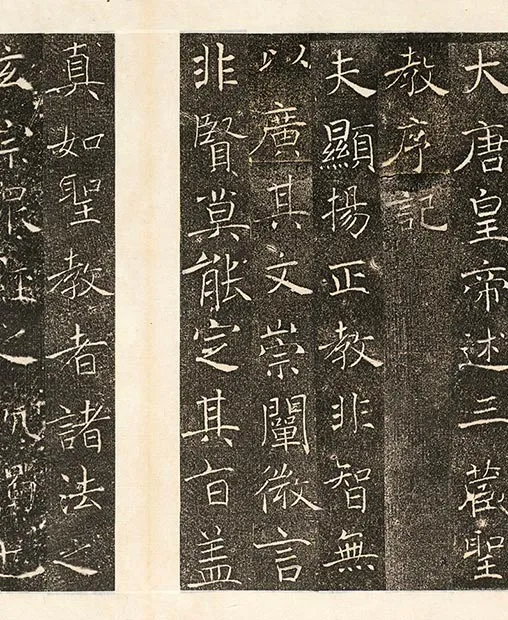 大唐皇帝述三藏聖
教序記
夫顯揚正教非智無
以廣其文崇闡微言
非賢莫能定其旨盖
真如聖教者諸法之
玄宗衆經之軌躅也